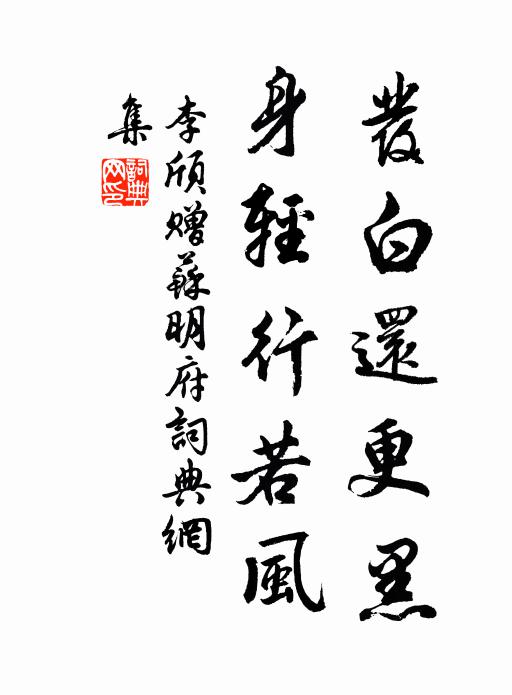 發白還更黑
身輕行若風
李頎贈蘇明府詞典網
集
詞典
网印